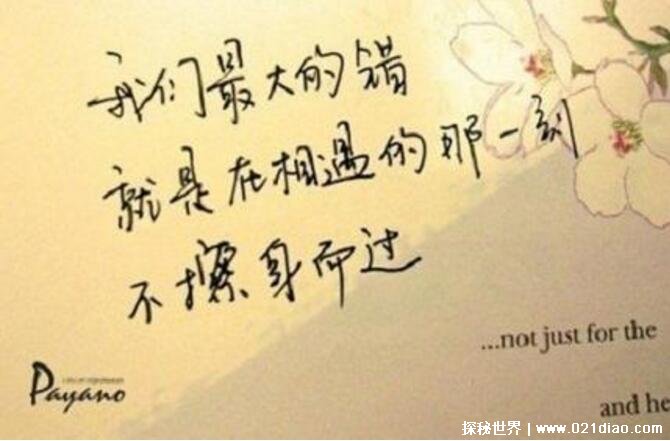 我们最大的错
就是在相遇的那一刻
不擦身而过
...not just for the
and he
Payano
探秘世界：www.021diao.com